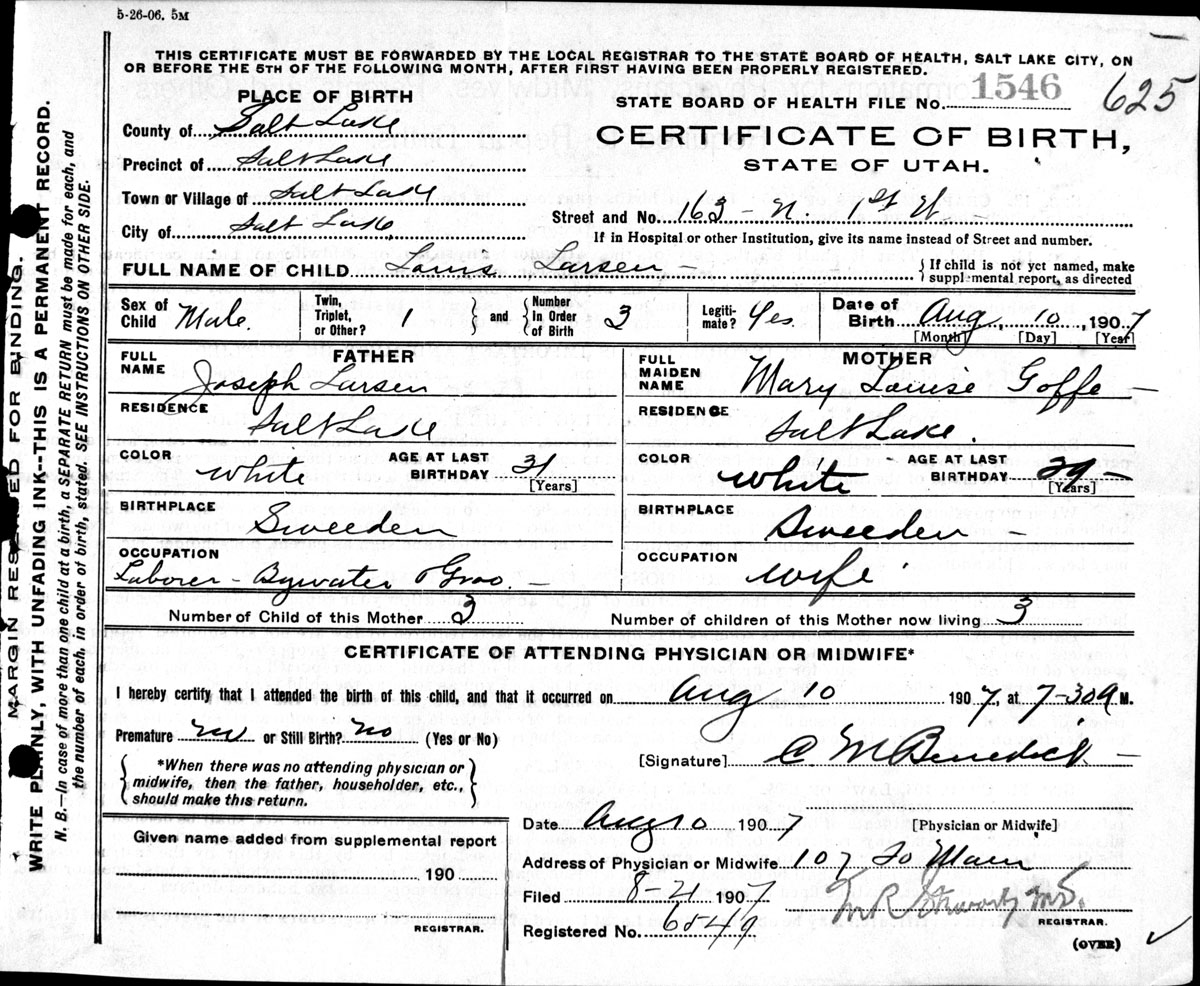 5-26-06. 5M
THIS CERTIFICATE MUST BE FORWARDED BY THE LOCAL REGISTRAR TO THE STATE BOARD OF HEALTH, SALT LAKE CITY, ON
OR BEFORE THE 5TH OF THE FOLLOWING MONTH, AFTER FIRST HAVING BEEN PROPERLY REGISTERED.
MARGIN RESERVED FOR BINDING.
WRITE PLAINLY, WITH UNFADING INK--THIS IS A PERMANENT RECORD.
N. B.—In case of more than one child at a birth, a SEPARATE RETURN must be made for each, and
the number of each, in order of birth, stated. SEE INSTRUCTIONS ON OTHER SIDE.
PLACE OF BIRTH
County of Salt Lake
Precinct of Salt Lake
Town or Village of Salt Lake
City of Salt Lake
STATE BOARD OF HEALTH FILE No. 1546 625
CERTIFICATE OF BIRTH,
STATE OF UTAH.
Street and No. 163 - N. 1st W -
If in Hospital or other Institution, give its name instead of Street and number.
FULL NAME OF CHILD Louis Larsen - } If child is not yet named, make
supplemental report, as directed
Sex of Child Male Twin, Triplet, or Other? 1 } and { Number In Order of Birth 3 Legiti- mate? Yes. Date of Birth Aug, 10, 1907
[Month] [Day] [Year]
FATHER
FULL NAME Joseph Larsen
RESIDENCE Salt Lake
COLOR White AGE AT LAST BIRTHDAY 31 [Years]
BIRTHPLACE Sweeden
OCCUPATION
Laborer - Bywater & Groo. -
MOTHER
FULL MAIDEN NAME Mary Louise Goffe -
RESIDENCE Salt Lake.
COLOR White AGE AT LAST BIRTHDAY 29 - [Years]
BIRTHPLACE Sweeden -
OCCUPATION wife
Number of Child of this Mother 3 Number of children of this Mother now living 3
CERTIFICATE OF ATTENDING PHYSICIAN OR MIDWIFE*
I hereby certify that I attended the birth of this child, and that it occurred on Aug 10 1907, at 7-30 a M.
Premature no or Still Birth? no (Yes or No)
*When there was no attending physician or
midwife, then the father, householder, etc.,
should make this return.
[Signature] C M Benedict -
Given name added from supplemental report
190
REGISTRAR.
Date Aug 10 1907 [Physician or Midwife]
Address of Physician or Midwife 107 So Main
Filed 8-21 1907
Registered No. 6549 REGISTRAR.
(OVER)